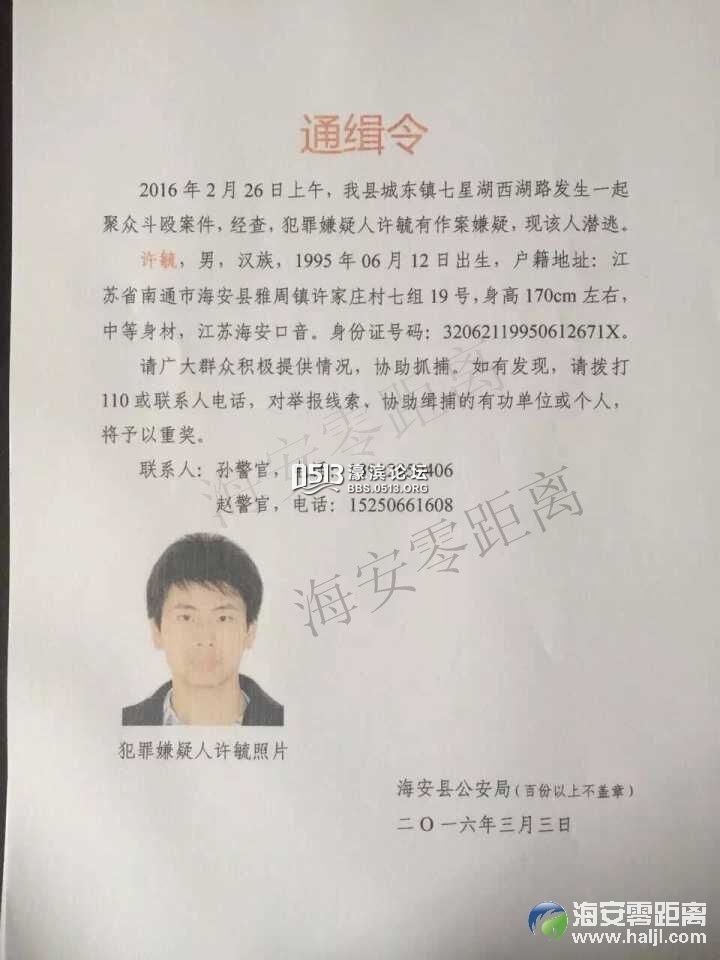 通缉令
2016 年 2 月 26 日上午，我县城东镇七星湖西湖路发生一起
聚众斗殴案件，经查，犯罪嫌疑人许毓有作案嫌疑，现该人潜逃。
许毓，男，汉族，1995 年 06 月 12 日出生，户籍地址：江
苏省南通市海安县雅周镇许家庄村七组 19 号，身高 170cm 左右，
中等身材，江苏海安口音。身份证号码：32062119950612671X。
请广大群众积极提供情况，协助抓捕。如有发现，请拨打
110 或联系人电话，对举报线索、协助缉捕的有功单位或个人，
将予以重奖。
联系人：孙警官，电话：406
0513 濠滨论坛
BBS.0513.ORG
赵警官，电话：15250661608
海安零距离
海安零距离
犯罪嫌疑人许毓照片
海安县公安局（百份以上不盖章）
二 O 一六年三月三日
海安零距离
www.haljl.com